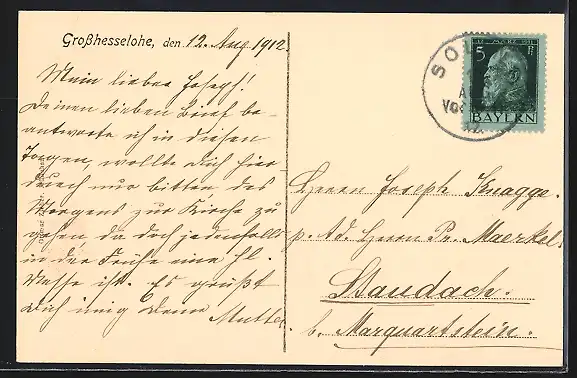 Großhesselohe, den 12. Aug 1912.
Mein lieber Joseph!
Deinen lieben Brief be-
antworte ich in diesen
Tagen, wollte Dich hier-
durch nur bitten des
Morgens zur Kirche zu
gehen, da doch jedenfalls
in der Frühe eine hl.
Messe ist. Es grüßt
Dich inig Deine Mutter.
SO
Vo
5
BAYERN
Herrn Joseph Knagge.
p. Ad. Herrn Pr. Maerkel
Staudach.
b. Marquartstein.